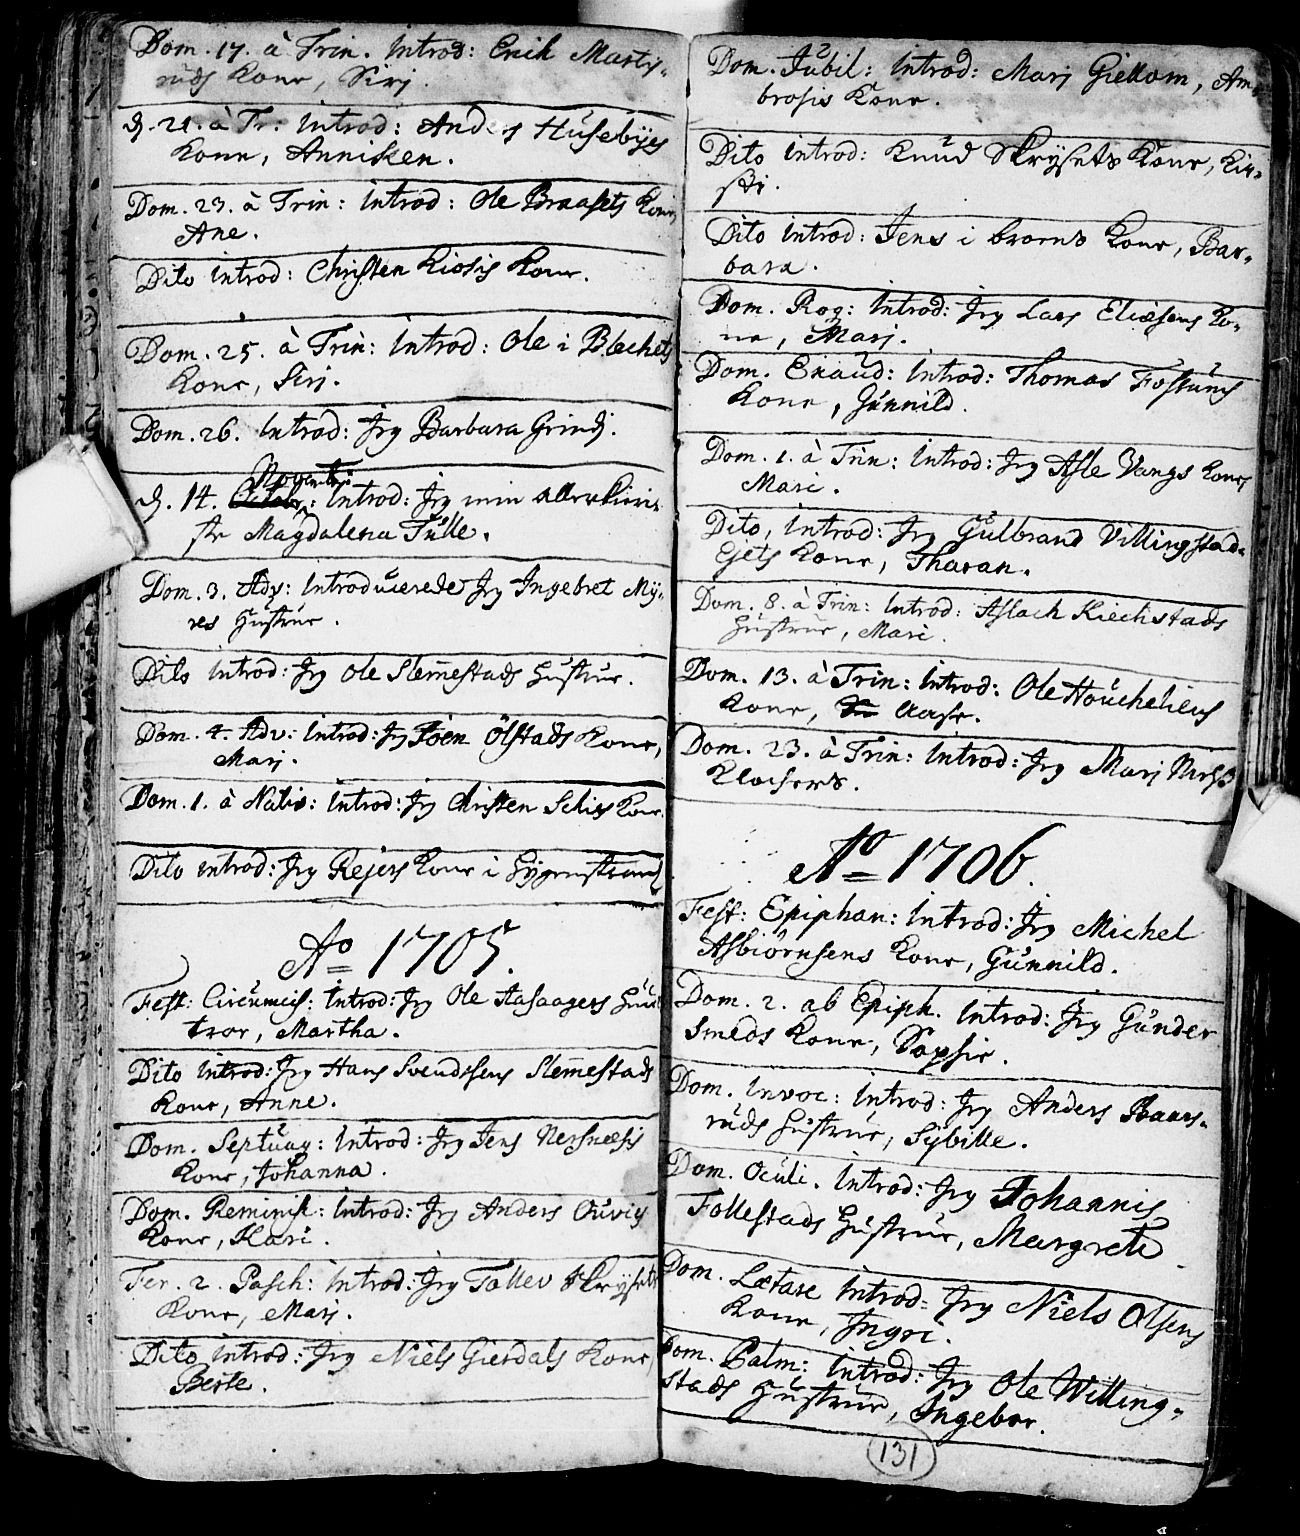 Dom. 17. à Trin. Introd: Erich Martis-
ruds Kone, Siri.
d. 21. à Tr. Introd: Anders Husebÿes
Kone, Annisken.
Dom. 23. à Trin: Introd: Ole Braasets Kone,
Ane.
Dito introd: Christen Kiosis Kone.
Dom. 25. à Trin: Introd: Ole i Blechets
Kone, Siri.
Dom. 26. Introd: Jeg Barbara Grindj.
Novembr:
d. 14. Introd: Jeg min allerkieri-
ste Magdalena Tulle.
Dom. 3. Adv: Introducerede Jeg Ingebret Mÿ-
res Hustrue.
Dito introd: Jeg Ole Slemestads Hustrue.
Dom. 4. Adv: Introd: Jeg Joen Ölstads Kone,
Marj.
Dom. 1. à Nativ: Introd: Jeg Christen Schis Kone.
Dito introd: Jeg Rejers Kone i Gygenstrand
Ao 1705.
Fest: Circumcis: Introd: Jeg Ole Aasaagers Hus
tror, Martha.
Dito introd: Jeg Hans Svendsens Slemestads
Kone, Anne.
Dom. Septuag: Introd: Jeg Jens Nersnæsis
Kone, Johanna.
Dom. Reminisc: Introd: Jeg Anders Ouvis
Kone, Kari.
Fer. 2. Pasch: Introd: Jeg Tollev Skrÿsets
Kone, Marj.
Dito introd: Jeg Niels Gierdals Kone,
Berte.
Dom. Jubil: Introd: Marj Giellom, Am-
brosis Kone.
Dito introd: Knud Skrÿsets Kone, Kir-
sti.
Dito introd: Jens i broens Kone, Bar-
bara.
Dom. Rog: Introd: Jeg Lars Eliæsens Ko-
ne, Marj.
Dom. Exaud: Introd: Thomas Fossums
Kone, Gunnild.
Dom. 1. à Trin: Introd: Jeg Asle Vangs Kone,
Mari.
Dito, introd: Jeg Gulbrand Villingstad-
Ejets Kone, Tharan.
Dom. 8. à Trin: Introd: Aslach Kiechstads
Hustrue, Mari.
Dom. 13. à Trin: Introd: Ole Houcheliens
Kone, Aase.
Dom. 23. à Trin: Introd: Jeg Marj
Klochers.
Ao 1706.
Fest: Epiphan: Introd: Jeg Michel
Asbiörnsens Kone, Gunnild.
Dom. 2. ab Epiph. Introd: Jeg Gunder
Smeds Kone, Sophie.
Dom. Invoc: Introd: Jeg Anders Baars-
ruds Hustrue, Sÿbille.
Dom. Oculi. Introd: Jeg Johannis
Follestads Hustrue, Margrete
Dom. Lætare Introd: Jeg Niels Olsens
Kone, Ingri.
Dom. Palm: Introd: Jeg Ole Willing-
stads Hustrue, Ingebor.
131